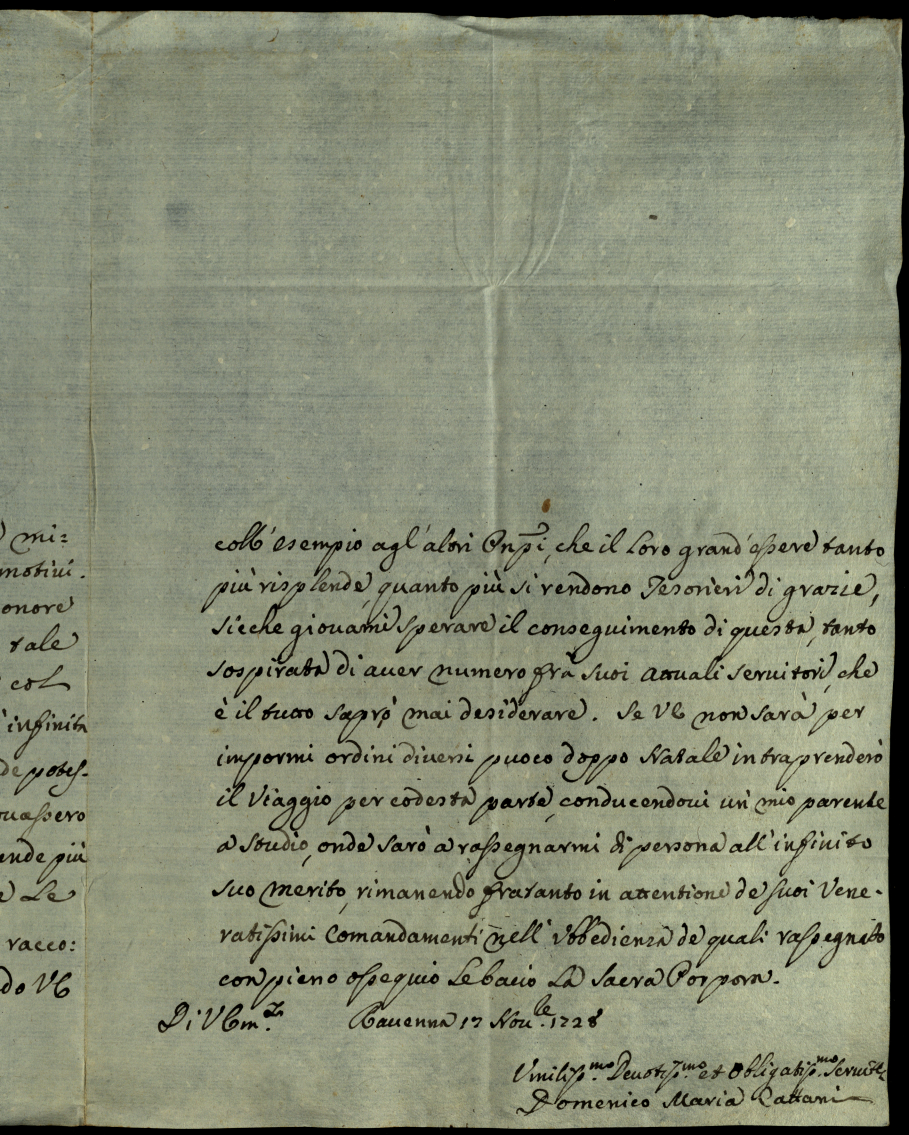 mi=
motivi.
onore
tale
col
infinita
de potes-
ovassero
ende più
Le
racco:
do VE
coll' esempio agl' altri Pnpi, che il Loro grand' essere tanto
più risplende, quanto più si rendono Tesorieri di grazie,
sicche giovami sperare il conseguimento di questa, tanto
sospirata di aver numero frà suoi attuali servitori, che
è il tutto saprò mai desiderare. Se VE non sarà per
impormi ordini diversi puoco doppo Natale intraprenderò
il Viaggio per codesta parte, conducendovi un' mio parente
a studio, onde sarò a rassegnarmi di persona all' infinito
suo merito, rimanendo fratanto in attentione de suoi Vene-
ratissimi Comandamenti nell' Vbbedienza de quali rassegnato
con pieno ossequio Le bacio La Sacra Porpora.
Di VEm.za Ravenna 17 Nov.le 1728
Vmiliss.mo Devotiss.mo et Obligatiss.mo Servit.e
Domenico Maria Cattani